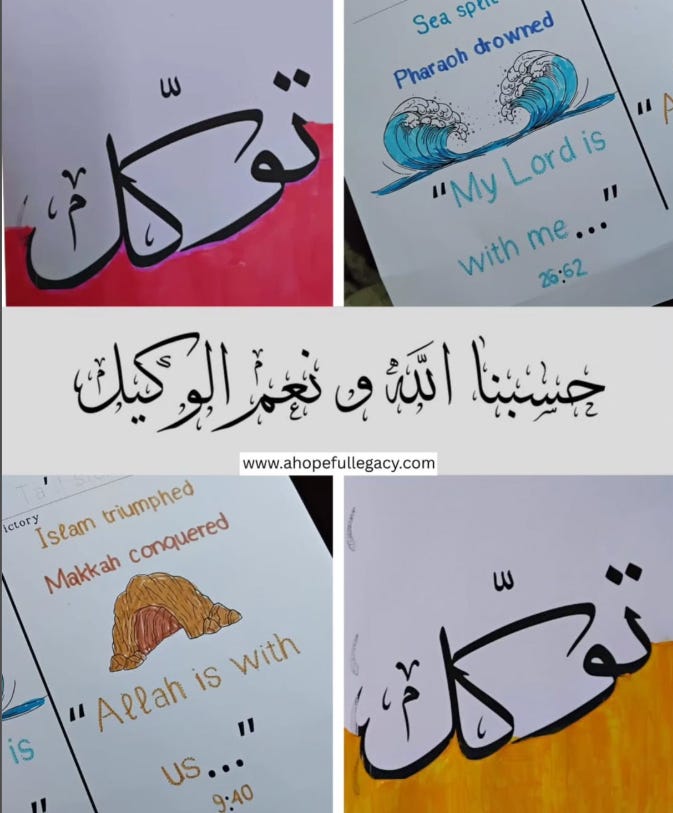 توكّل
Sea split
Pharaoh drowned
"My Lord is
with me..."
26:62
"
حسبنا الله و نعم الوكيل
www.ahopefullegacy.com
ictory
Islam triumphed
Makkah conquered
"Allah is with
us..."
9:40
is
"
توكّل